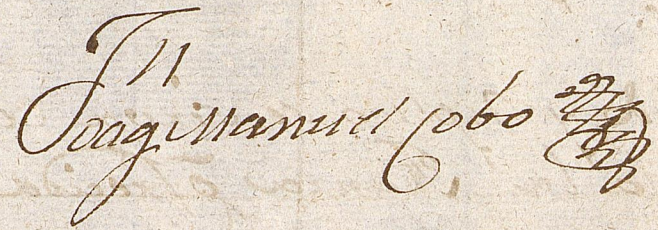 Joaqⁿ Manuel Cobo